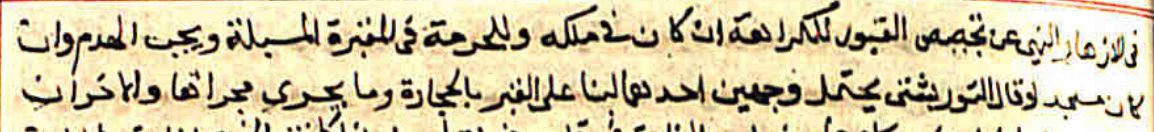 في الازهار النهي عن تجصيص القبور للكراهة ان كان في ملكه وللحرمة في المقبرة المسبلة ويجب الهدم وان
كان مسجدا وقال التوربشتي يحتمل وجهين احدهما البنا على القبر بالحجارة وما يجري مجراها والاخر ان